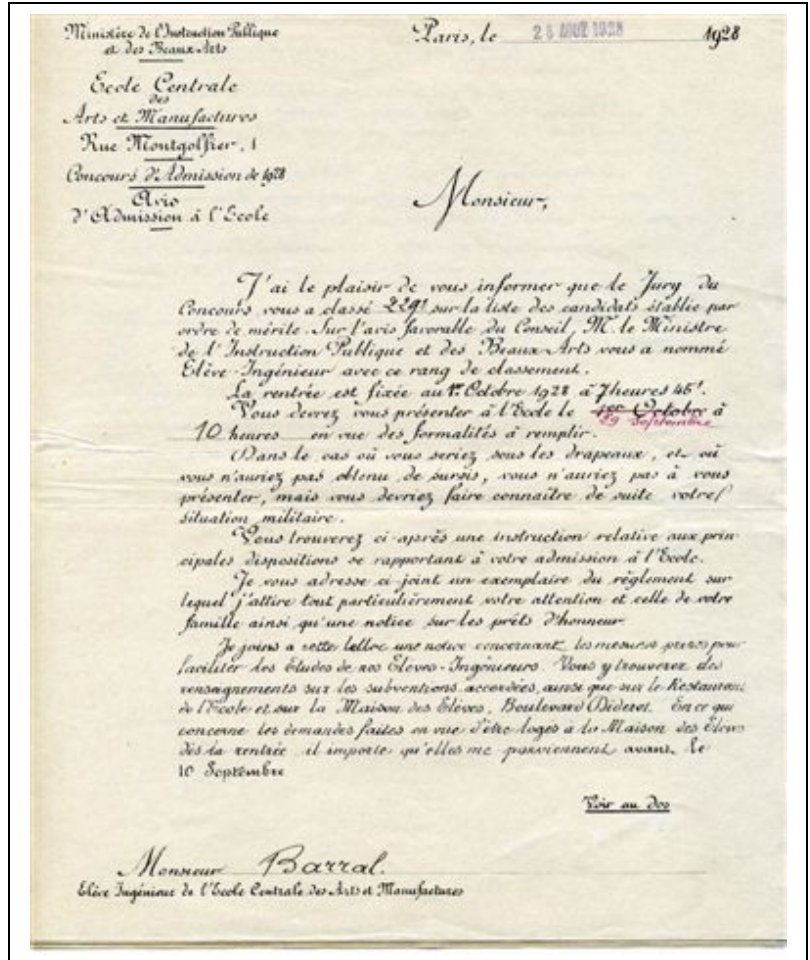 Ministère de l'Instruction Publique
et des Beaux-Arts
Ecole Centrale
des
Arts et Manufactures
Rue Montgolfier, 1
Concours d'Admission de 1928
Avis
d'Admission à l'Ecole
Paris, le 28 AOUT 1928 1928
Monsieur,
J'ai le plaisir de vous informer que le Jury du
Concours vous a classé 229e sur la liste des candidats établie par
ordre de mérite. Sur l'avis favorable du Conseil, M. le Ministre
de l'Instruction Publique et des Beaux-Arts vous a nommé
Elève-Ingénieur avec ce rang de classement.
La rentrée est fixée au 1er Octobre 1928 à 7 heures 45'.
Vous devrez vous présenter à l'Ecole le 1er Octobre à
29 Septembre
10 heures en vue des formalités à remplir.
Dans le cas où vous seriez sous les drapeaux, et où
vous n'auriez pas obtenu de sursis, vous n'auriez pas à vous
présenter, mais vous devriez faire connaître de suite votre
situation militaire.
Vous trouverez ci-après une instruction relative aux prin-
cipales dispositions se rapportant à votre admission à l'Ecole.
Je vous adresse ci-joint un exemplaire du règlement sur
lequel j'attire tout particulièrement votre attention et celle de votre
famille ainsi qu'une notice sur les prêts d'honneur
Je joins a cette lettre une notice concernant les mesures prises pour
faciliter les Etudes de nos Elèves-Ingénieurs. Vous y trouverez des
renseignements sur les subventions accordées, ainsi que sur le Restaurant
de l'Ecole et sur la Maison des Elèves, Boulevard Diderot. En ce qui
concerne les demandes faites en vue d'être logés à la Maison des Elèves
dès la rentrée il importe qu'elles me parviennent avant le
10 Septembre
Voir au dos
Monsieur Barral.
Elève Ingénieur de l'Ecole Centrale des Arts et Manufactures